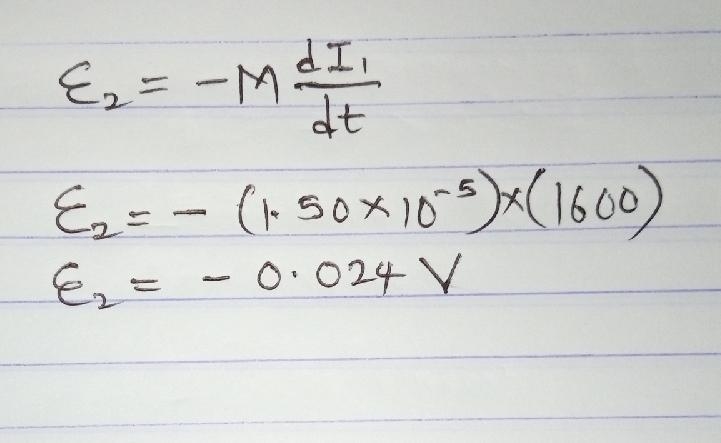 ε₂ = -M dI₁/dt
ε₂ = - (1.50×10⁻⁵)×(1600)
ε₂ = - 0.024 V